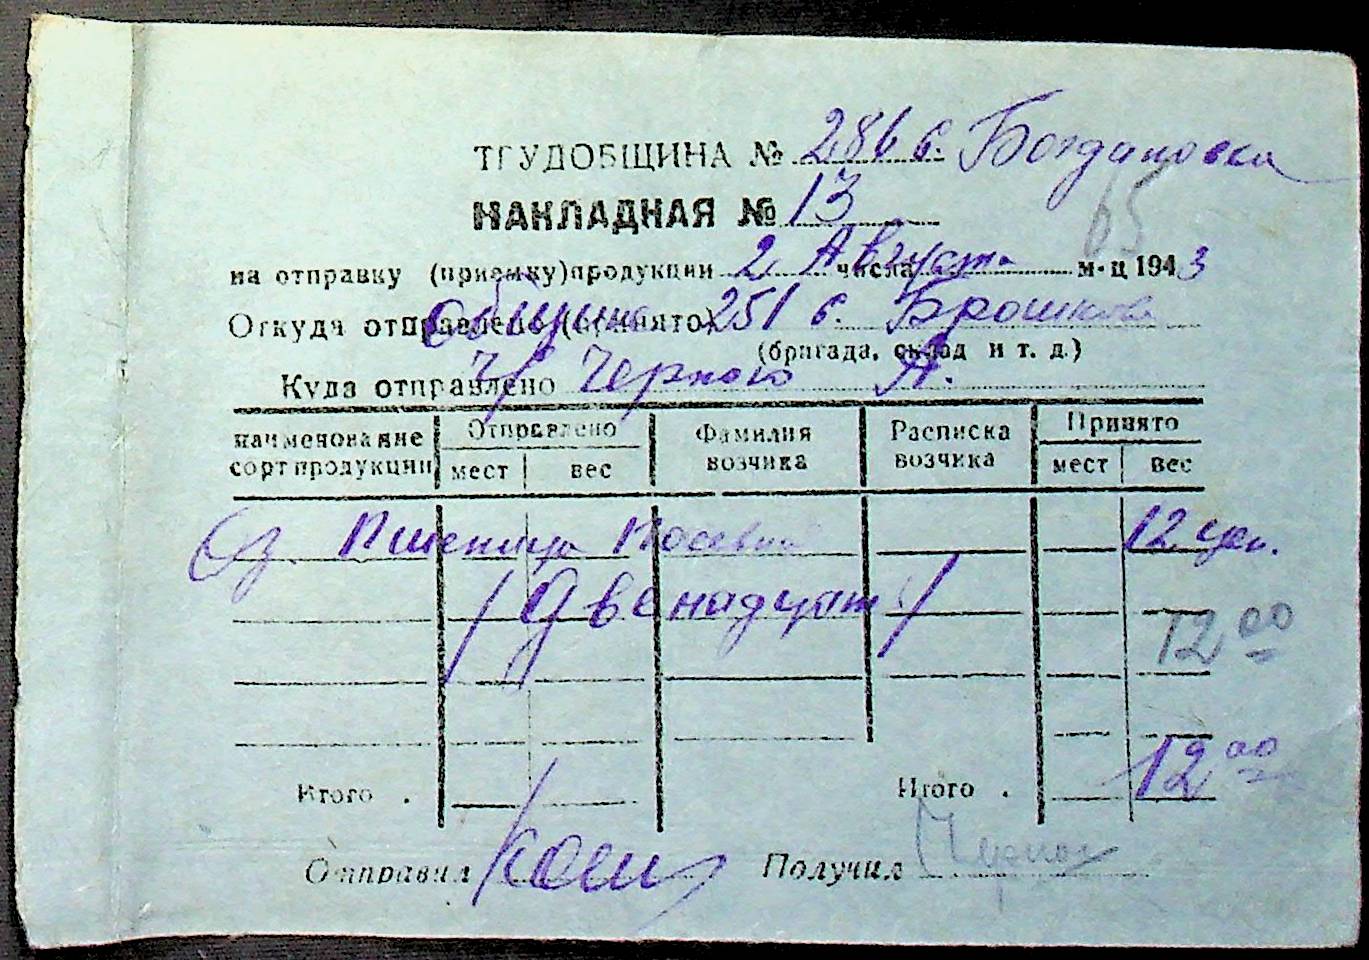 ТРУДОБЩИНА № 286 с. Богдановка
НАКЛАДНАЯ № 13
65
на отправку (приемку) продукции 2 числа Августа м-ц 1943
Откуда отправлено (принято) Община 251 с. Брошково
(бригада, склад и т. д.)
Куда отправлено ч/ Черного А.
наименование сорт продукции Отправлено мест вес Фамилия возчика Расписка возчика Принято мест вес
Оз. Пшеница Посевная 12 цен.
/Двенадцать/
12 00
Итого . Итого . 12 00
Отправил Получил